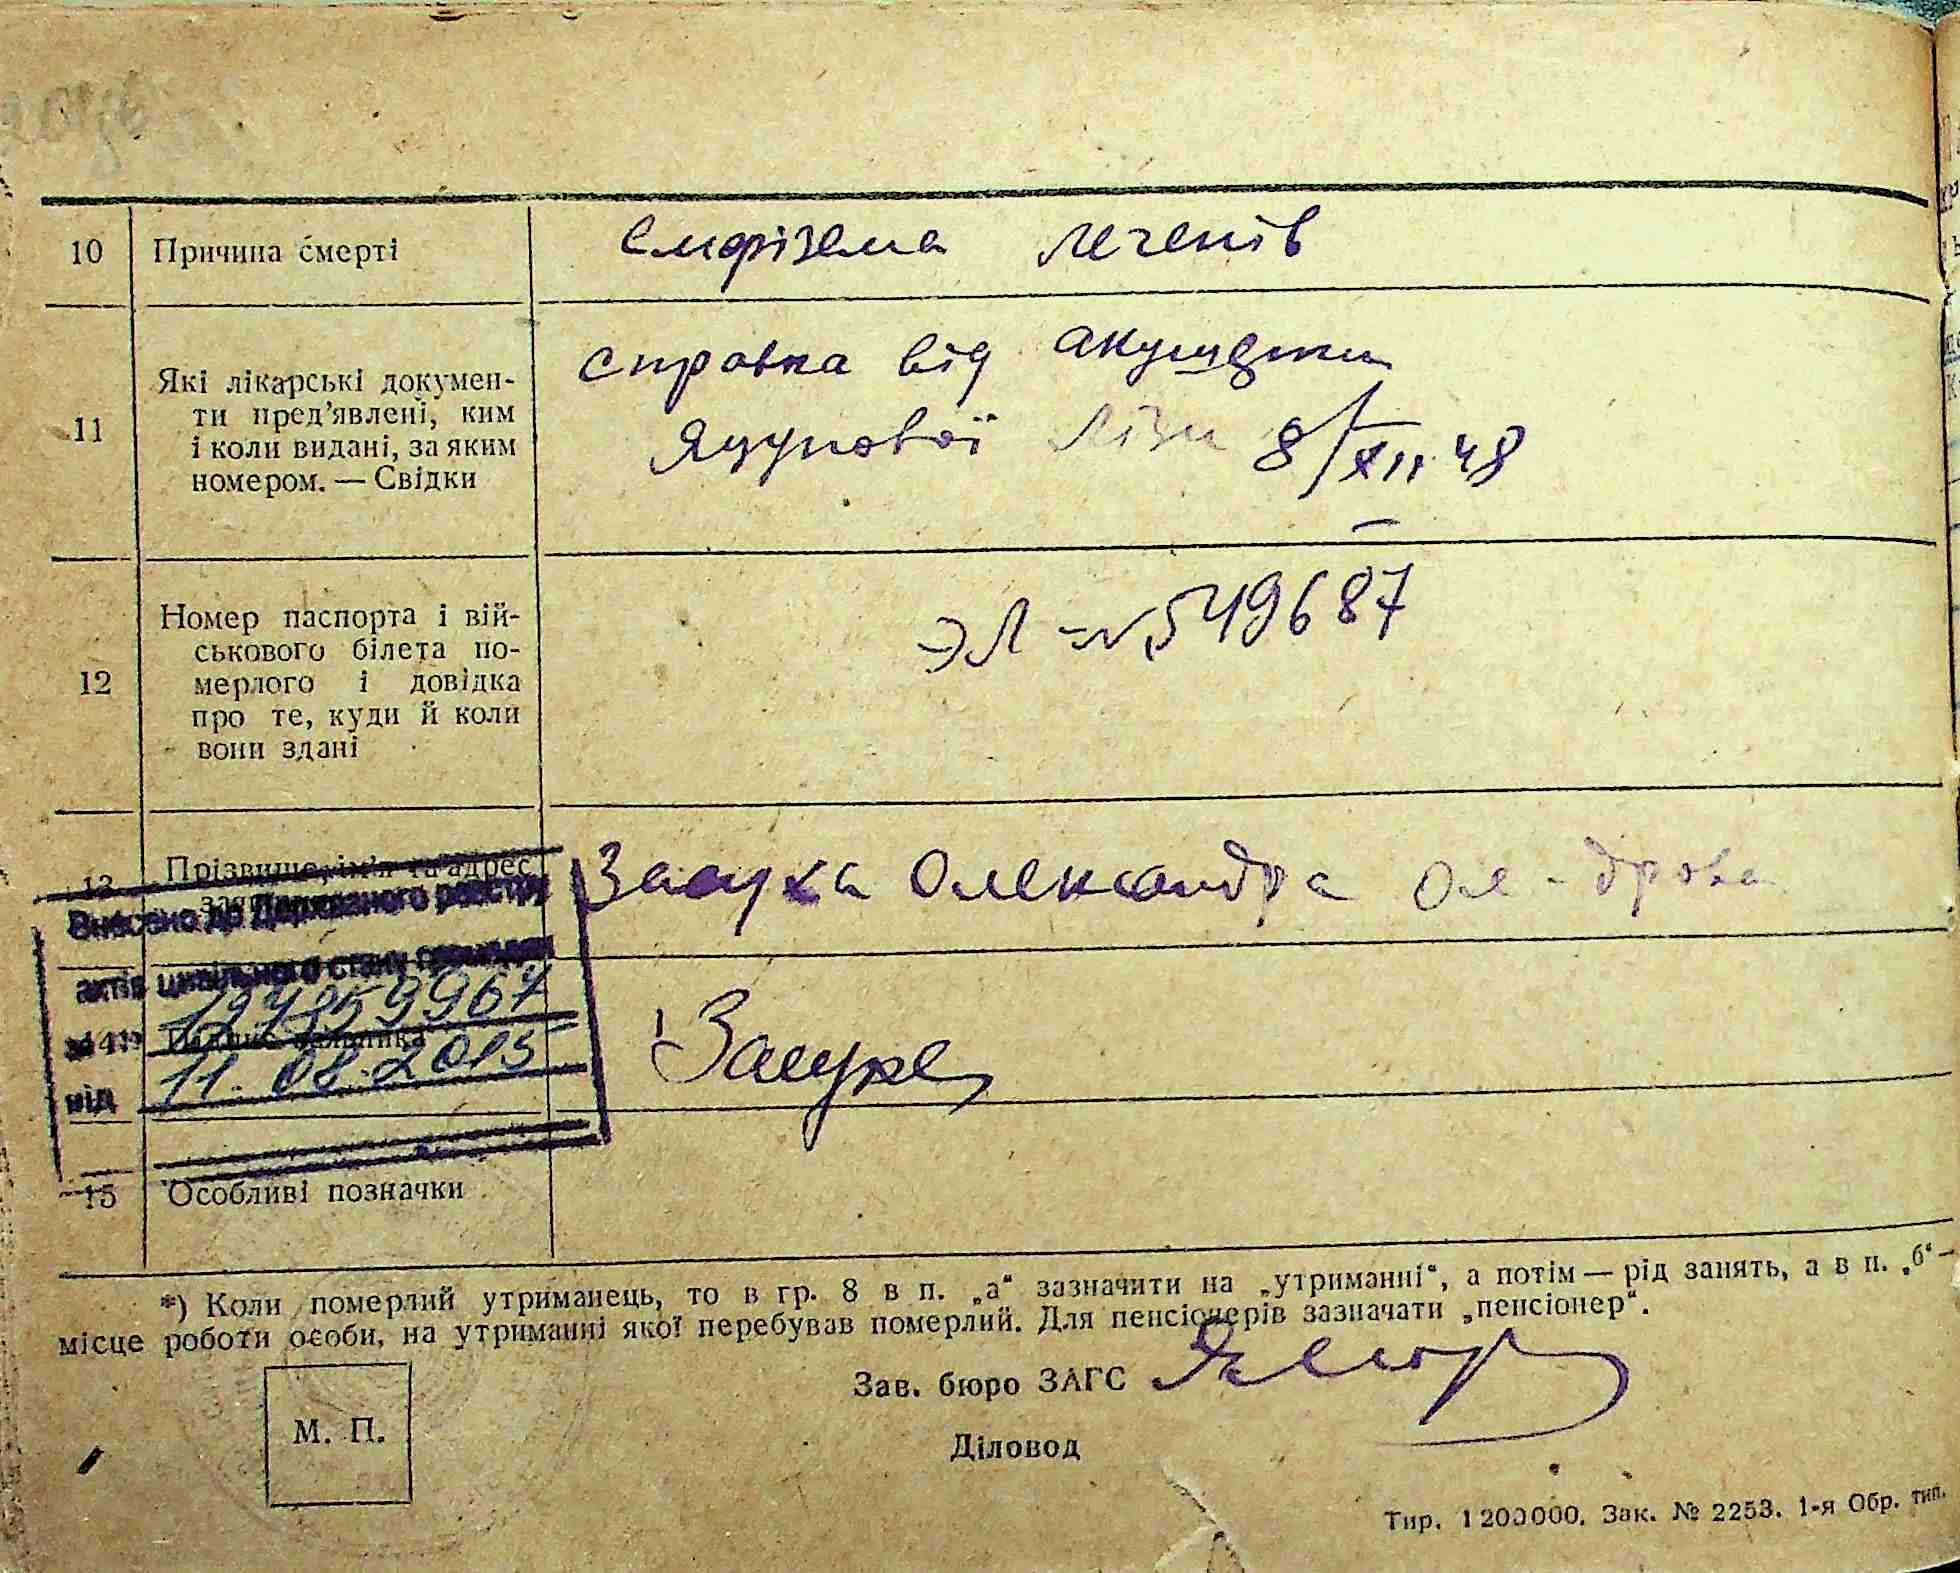 10 Причина смерті
Емфізема легенів
11 Які лікарські докумен-
ти пред'явлені, ким
і коли видані, за яким
номером. — Свідки
справка від акушерки
Яцупової Лізи 8/XII 48
12 Номер паспорта і вій-
ськового білета по-
мерлого і довідка
про те, куди й коли
вони здані
ЭЛ-№549687
13 Прізвище, ім'я та адрес
Засуха Олександра Ол-дрова
Внесено до Державного реєстру
актів цивільного стану громадян
14 Підпис заявника
Засуха
від 11.08.2015
15 Особливі позначки
*) Коли померлий утриманець, то в гр. 8 в п. „а“ зазначити на „утриманні“, а потім — рід занять, а в п. „б“ —
місце роботи особи, на утриманні якої перебував померлий. Для пенсіонерів зазначати „пенсіонер“.
Зав. бюро ЗАГС
М. П.
Діловод
Тир. 1200000. Зак. № 2253. 1-я Обр. тип.